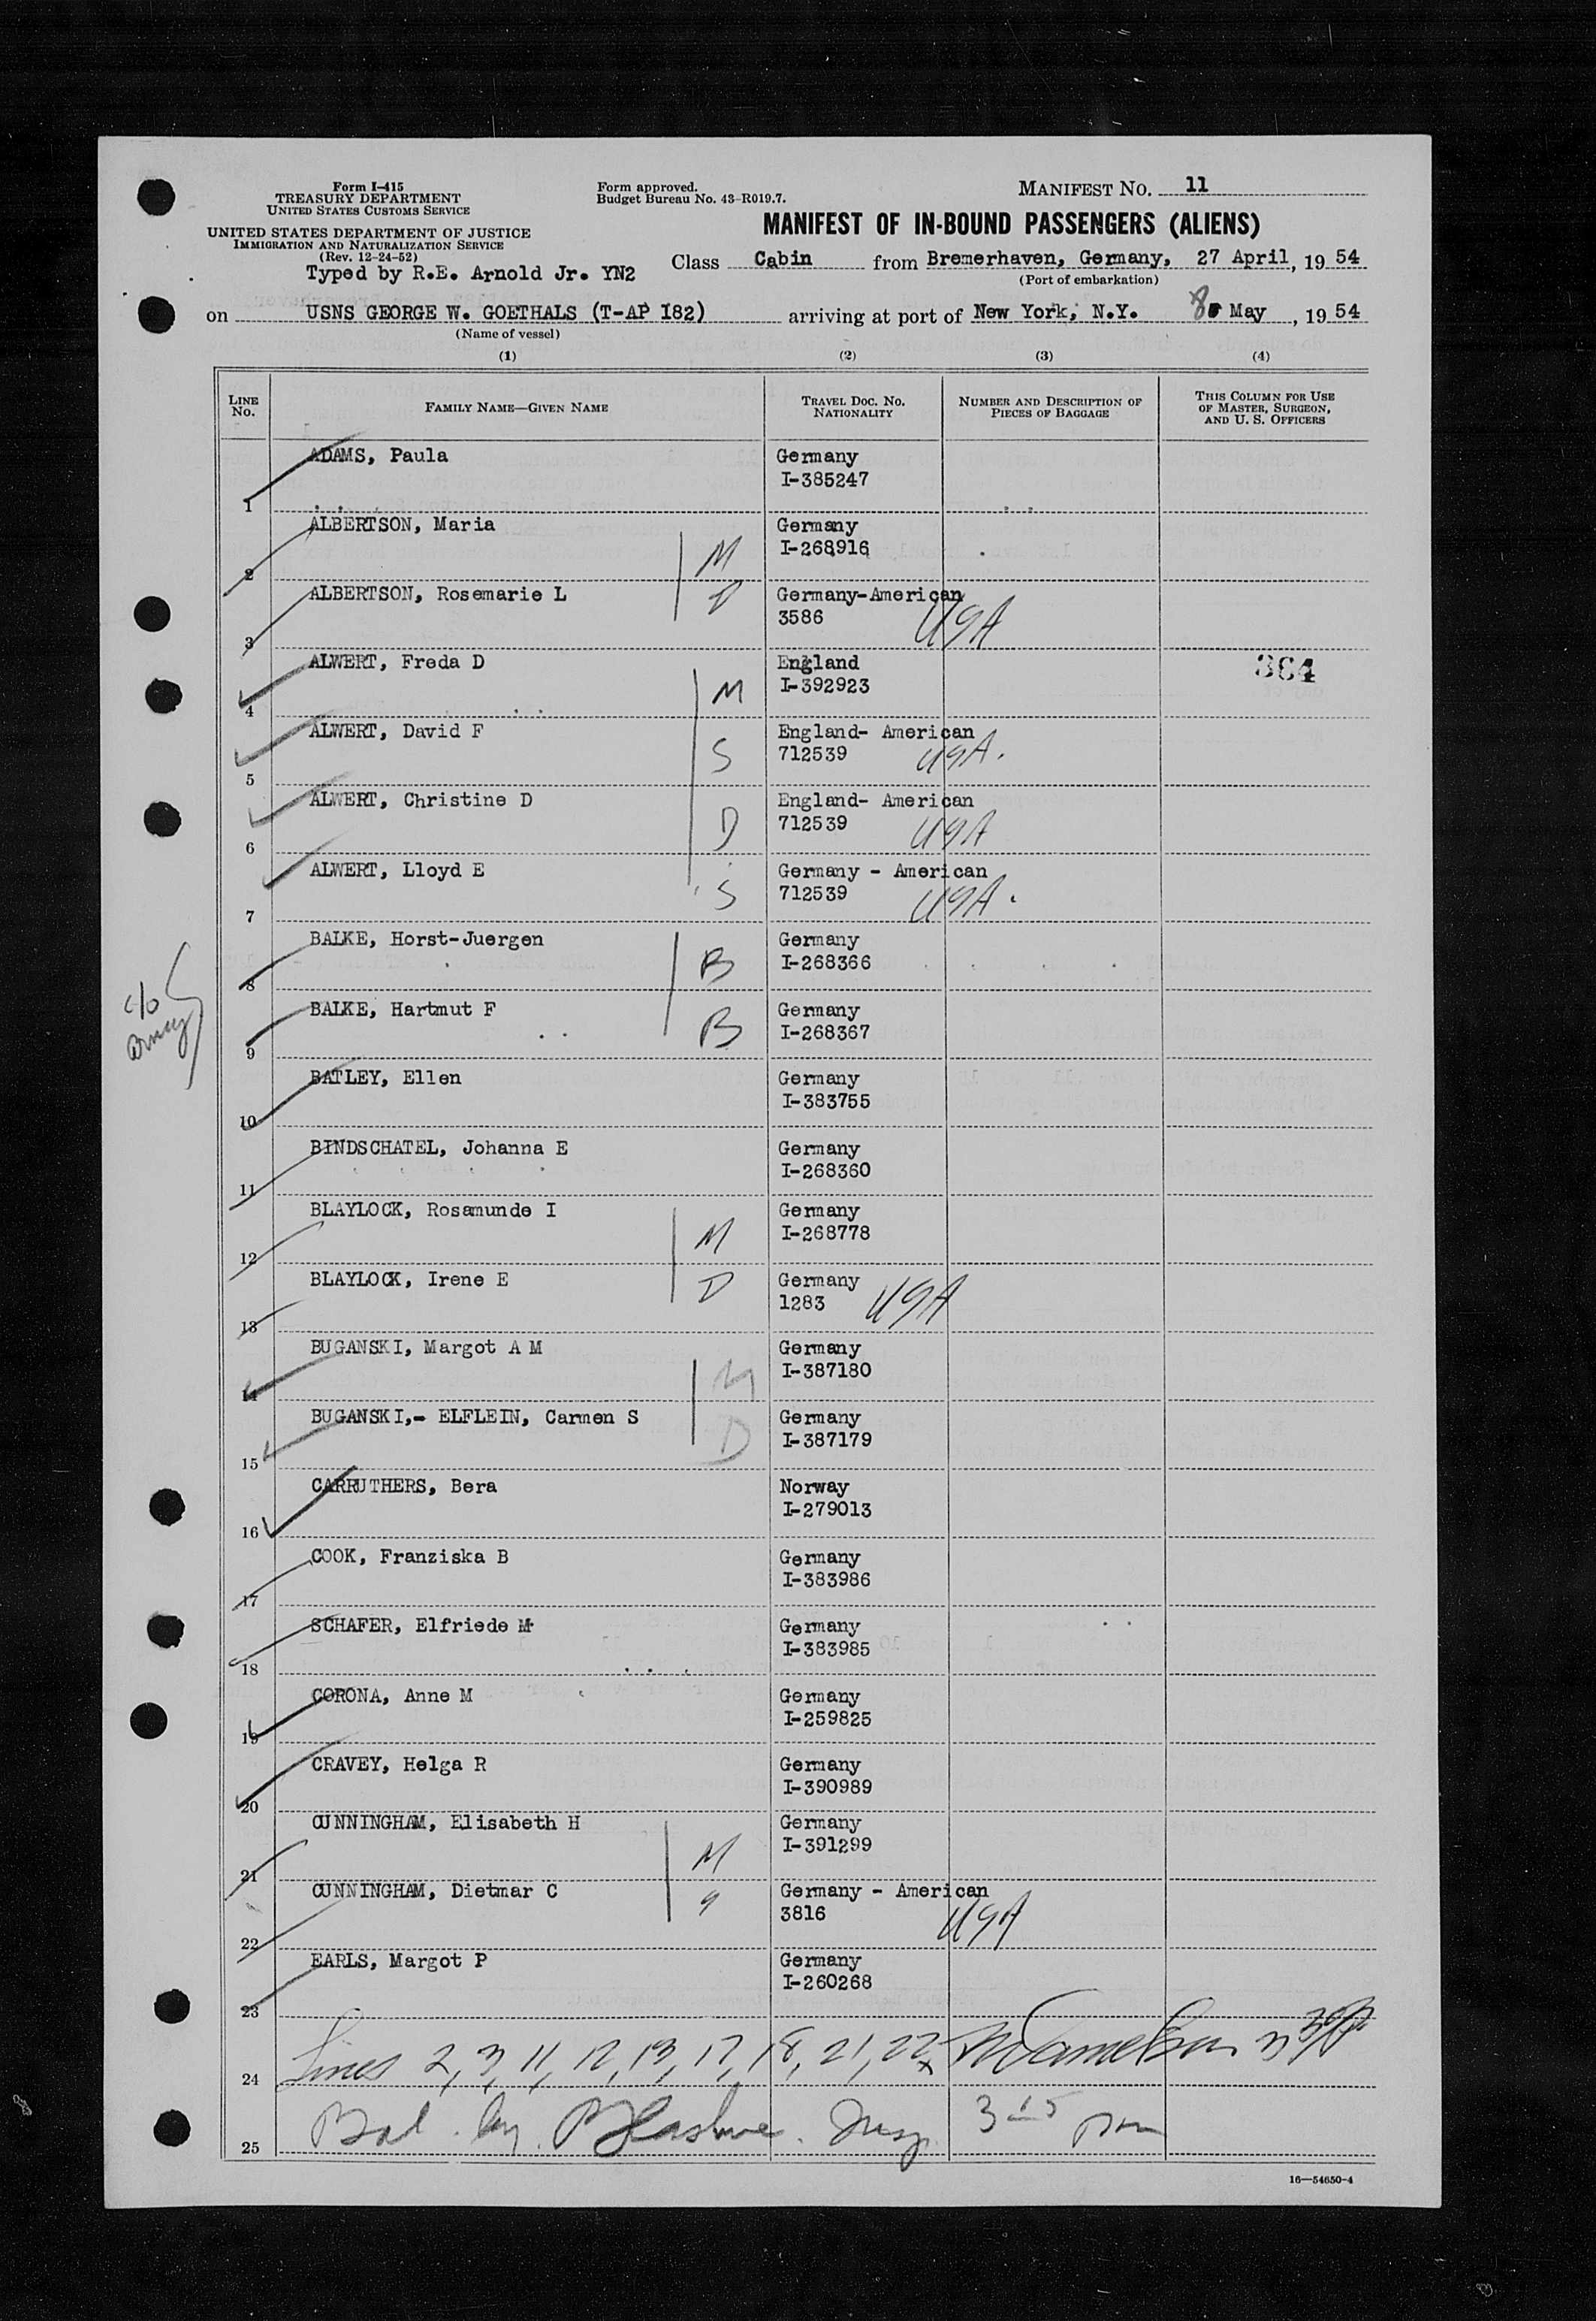 Form I-415
TREASURY DEPARTMENT
UNITED STATES CUSTOMS SERVICE
UNITED STATES DEPARTMENT OF JUSTICE
IMMIGRATION AND NATURALIZATION SERVICE
(Rev. 12-24-52)
Typed by R.E. Arnold Jr. YN2
Form approved.
Budget Bureau No. 43-R019.7.
MANIFEST NO. 11
MANIFEST OF IN-BOUND PASSENGERS (ALIENS)
Class Cabin from Bremerhaven, Germany, 27 April, 19 54
(Port of embarkation)
on USNS GEORGE W. GOETHALS (T-AP 182) arriving at port of New York, N.Y. 8 May, 19 54
(Name of vessel)
(1) (2) (3) (4)
LINE NO. FAMILY NAME—GIVEN NAME TRAVEL DOC. NO. NATIONALITY NUMBER AND DESCRIPTION OF PIECES OF BAGGAGE THIS COLUMN FOR USE OF MASTER, SURGEON, AND U. S. OFFICERS
ADAMS, Paula Germany
1 I-385247
ALBERTSON, Maria Germany
2 M I-268916
ALBERTSON, Rosemarie L Germany-American
3 D 3586 USA
ALWERT, Freda D England 364
4 M I-392923
ALWERT, David F England- American
5 S 712539 USA.
ALWERT, Christine D England- American
6 D 712539 USA
ALWERT, Lloyd E Germany - American
7 S 712539 USA.
BALKE, Horst-Juergen Germany
8 B I-268366
c/o Army
BALKE, Hartmut F Germany
9 B I-268367
BATLEY, Ellen Germany
10 I-383755
BINDSCHATEL, Johanna E Germany
11 I-268360
BLAYLOCK, Rosamunde I Germany
12 M I-268778
BLAYLOCK, Irene E Germany
13 D 1283 USA
BUGANSKI, Margot A M Germany
14 M I-387180
BUGANSKI,- ELFLEIN, Carmen S Germany
15 D I-387179
CARRUTHERS, Bera Norway
16 I-279013
COOK, Franziska B Germany
17 I-383986
SCHAFER, Elfriede M Germany
18 I-383985
CORONA, Anne M Germany
19 I-259825
CRAVEY, Helga R Germany
20 I-390989
CUNNINGHAM, Elisabeth H Germany
21 M I-391299
CUNNINGHAM, Dietmar C Germany - American
22 S 3816 USA
EARLS, Margot P Germany
23 I-260268
24 Lines 2, 3, 11, 12, 13, 17, 18, 21, 22
25 Bal. by Insp. 3 15 pm
16—54650-4